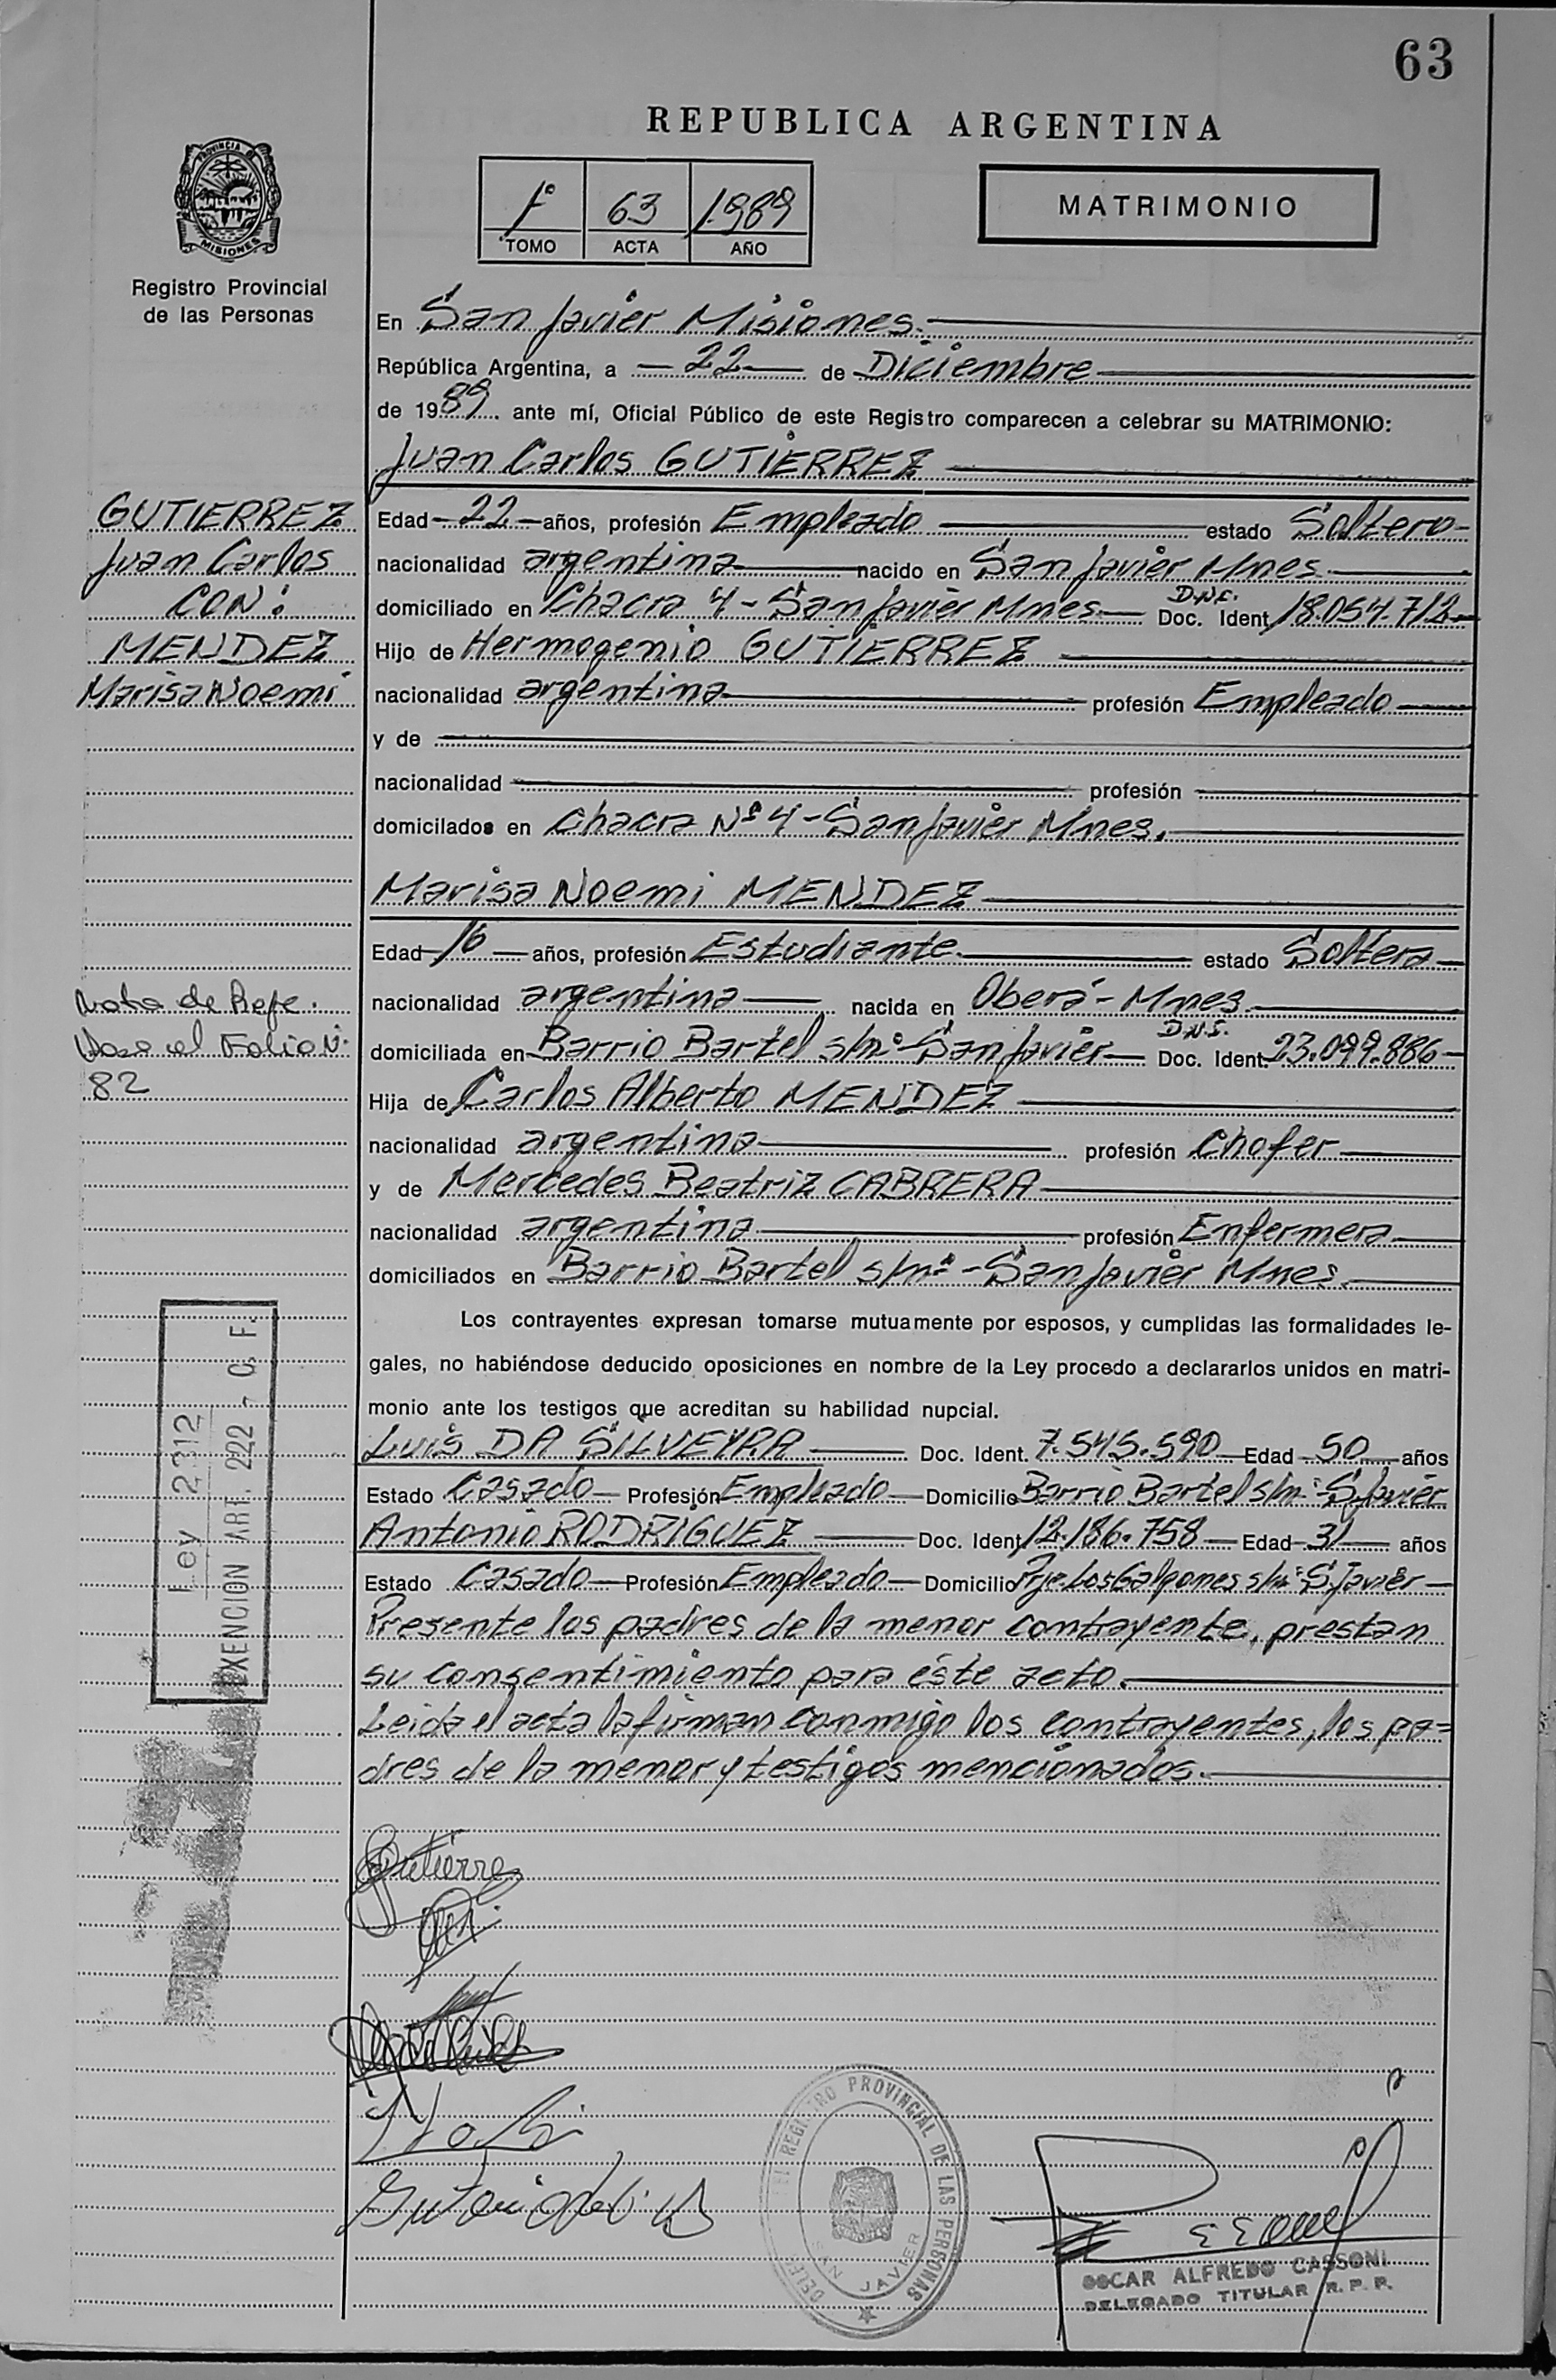 63
REPUBLICA ARGENTINA
1º 63 1989
TOMO ACTA AÑO
MATRIMONIO
PROVINCIA DE
MISIONES
Registro Provincial
de las Personas
En San Javier Misiones.
República Argentina, a - 22 - de Diciembre
de 1989 ante mí, Oficial Público de este Registro comparecen a celebrar su MATRIMONIO:
Juan Carlos GUTIERREZ
GUTIERREZ
Juan Carlos
CON:
MENDEZ
Marisa Noemi
Edad - 22 - años, profesión Empleado estado Soltero -
nacionalidad argentina nacido en San Javier Mnes.
domiciliado en Chacra 4 - San Javier Mnes - D.N.I. Doc. Ident. 18.054.712 -
Hijo de Hermogenio GUTIERREZ
nacionalidad argentina profesión Empleado
y de
nacionalidad profesión
domicilados en Chacra Nº 4 - San Javier Mnes.
Marisa Noemi MENDEZ
Edad 16 - años, profesión Estudiante. estado Soltera
nacionalidad argentina nacida en Oberá - Mnes.
domiciliada en Barrio Bartel s/nº - San Javier - D.N.I. Doc. Ident. 23.099.886 -
Hija de Carlos Alberto MENDEZ
nacionalidad argentina profesión chofer
y de Mercedes Beatriz CABRERA
nacionalidad argentina profesión Enfermera
domiciliados en Barrio Bartel s/nº - San Javier Mnes.
Nota de Refe.
el Folio Nº
82
Los contrayentes expresan tomarse mutuamente por esposos, y cumplidas las formalidades le-
gales, no habiéndose deducido oposiciones en nombre de la Ley procedo a declararlos unidos en matri-
monio ante los testigos que acreditan su habilidad nupcial.
Luis DA SILVEYRA Doc. Ident. 7.545.590 Edad - 50 - años
Estado Casado - Profesión Empleado - Domicilio Barrio Bartel s/nº S. Javier
Antonio RODRIGUEZ Doc. Ident. 12.186.758 - Edad - 31 - años
Estado Casado - Profesión Empleado - Domicilio Pje. Los Galpones s/nº S. Javier -
Presente los padres de la menor contrayente, prestan
su consentimiento para éste acto.
Leida el acta la firman conmigo los contrayentes, los pa=
dres de la menor y testigos mencionados.
Ley 2312
EXENCION ART. 222 - C. F.
Gutierrez
DEL REGISTRO PROVINCIAL DE LAS PERSONAS
SAN JAVIER
OSCAR ALFREDO CASSONI
DELEGADO TITULAR R. P. P.